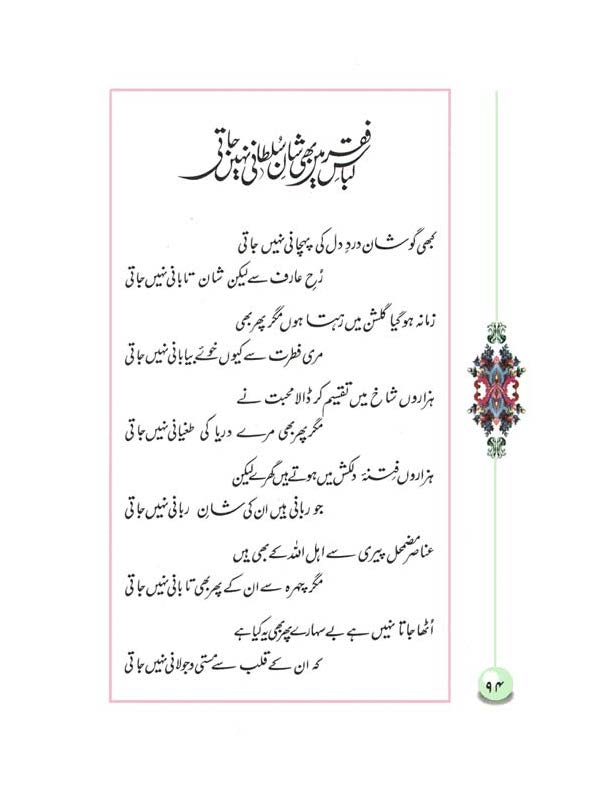 لباسِ فقر میں بھی شانِ سُلطانی نہیں جاتی
کبھی گو شان دردِ دل کی پہچانی نہیں جاتی
رُخِ عارف سے لیکن شان تابانی نہیں جاتی
زمانہ ہوگیا گلشن میں رہتا ہوں مگر پھر بھی
مری فطرت سے کیوں خوئے بیابانی نہیں جاتی
ہزاروں شاخ میں تقسیم کر ڈالا محبت نے
مگر پھر بھی مرے دریا کی طغیانی نہیں جاتی
ہزاروں فِتنۂ دلکش میں ہوتے ہیں گھرے لیکن
جو ربانی ہیں ان کی شانِ ربانی نہیں جاتی
عناصر مضمحل پیری سے اہل اللہ کے بھی ہیں
مگر چہرہ سے ان کے پھر بھی تابانی نہیں جاتی
اُٹھا جاتا نہیں ہے بے سہارے پھر بھی یہ کیا ہے
کہ ان کے قلب سے مستی و جولانی نہیں جاتی
۹۴